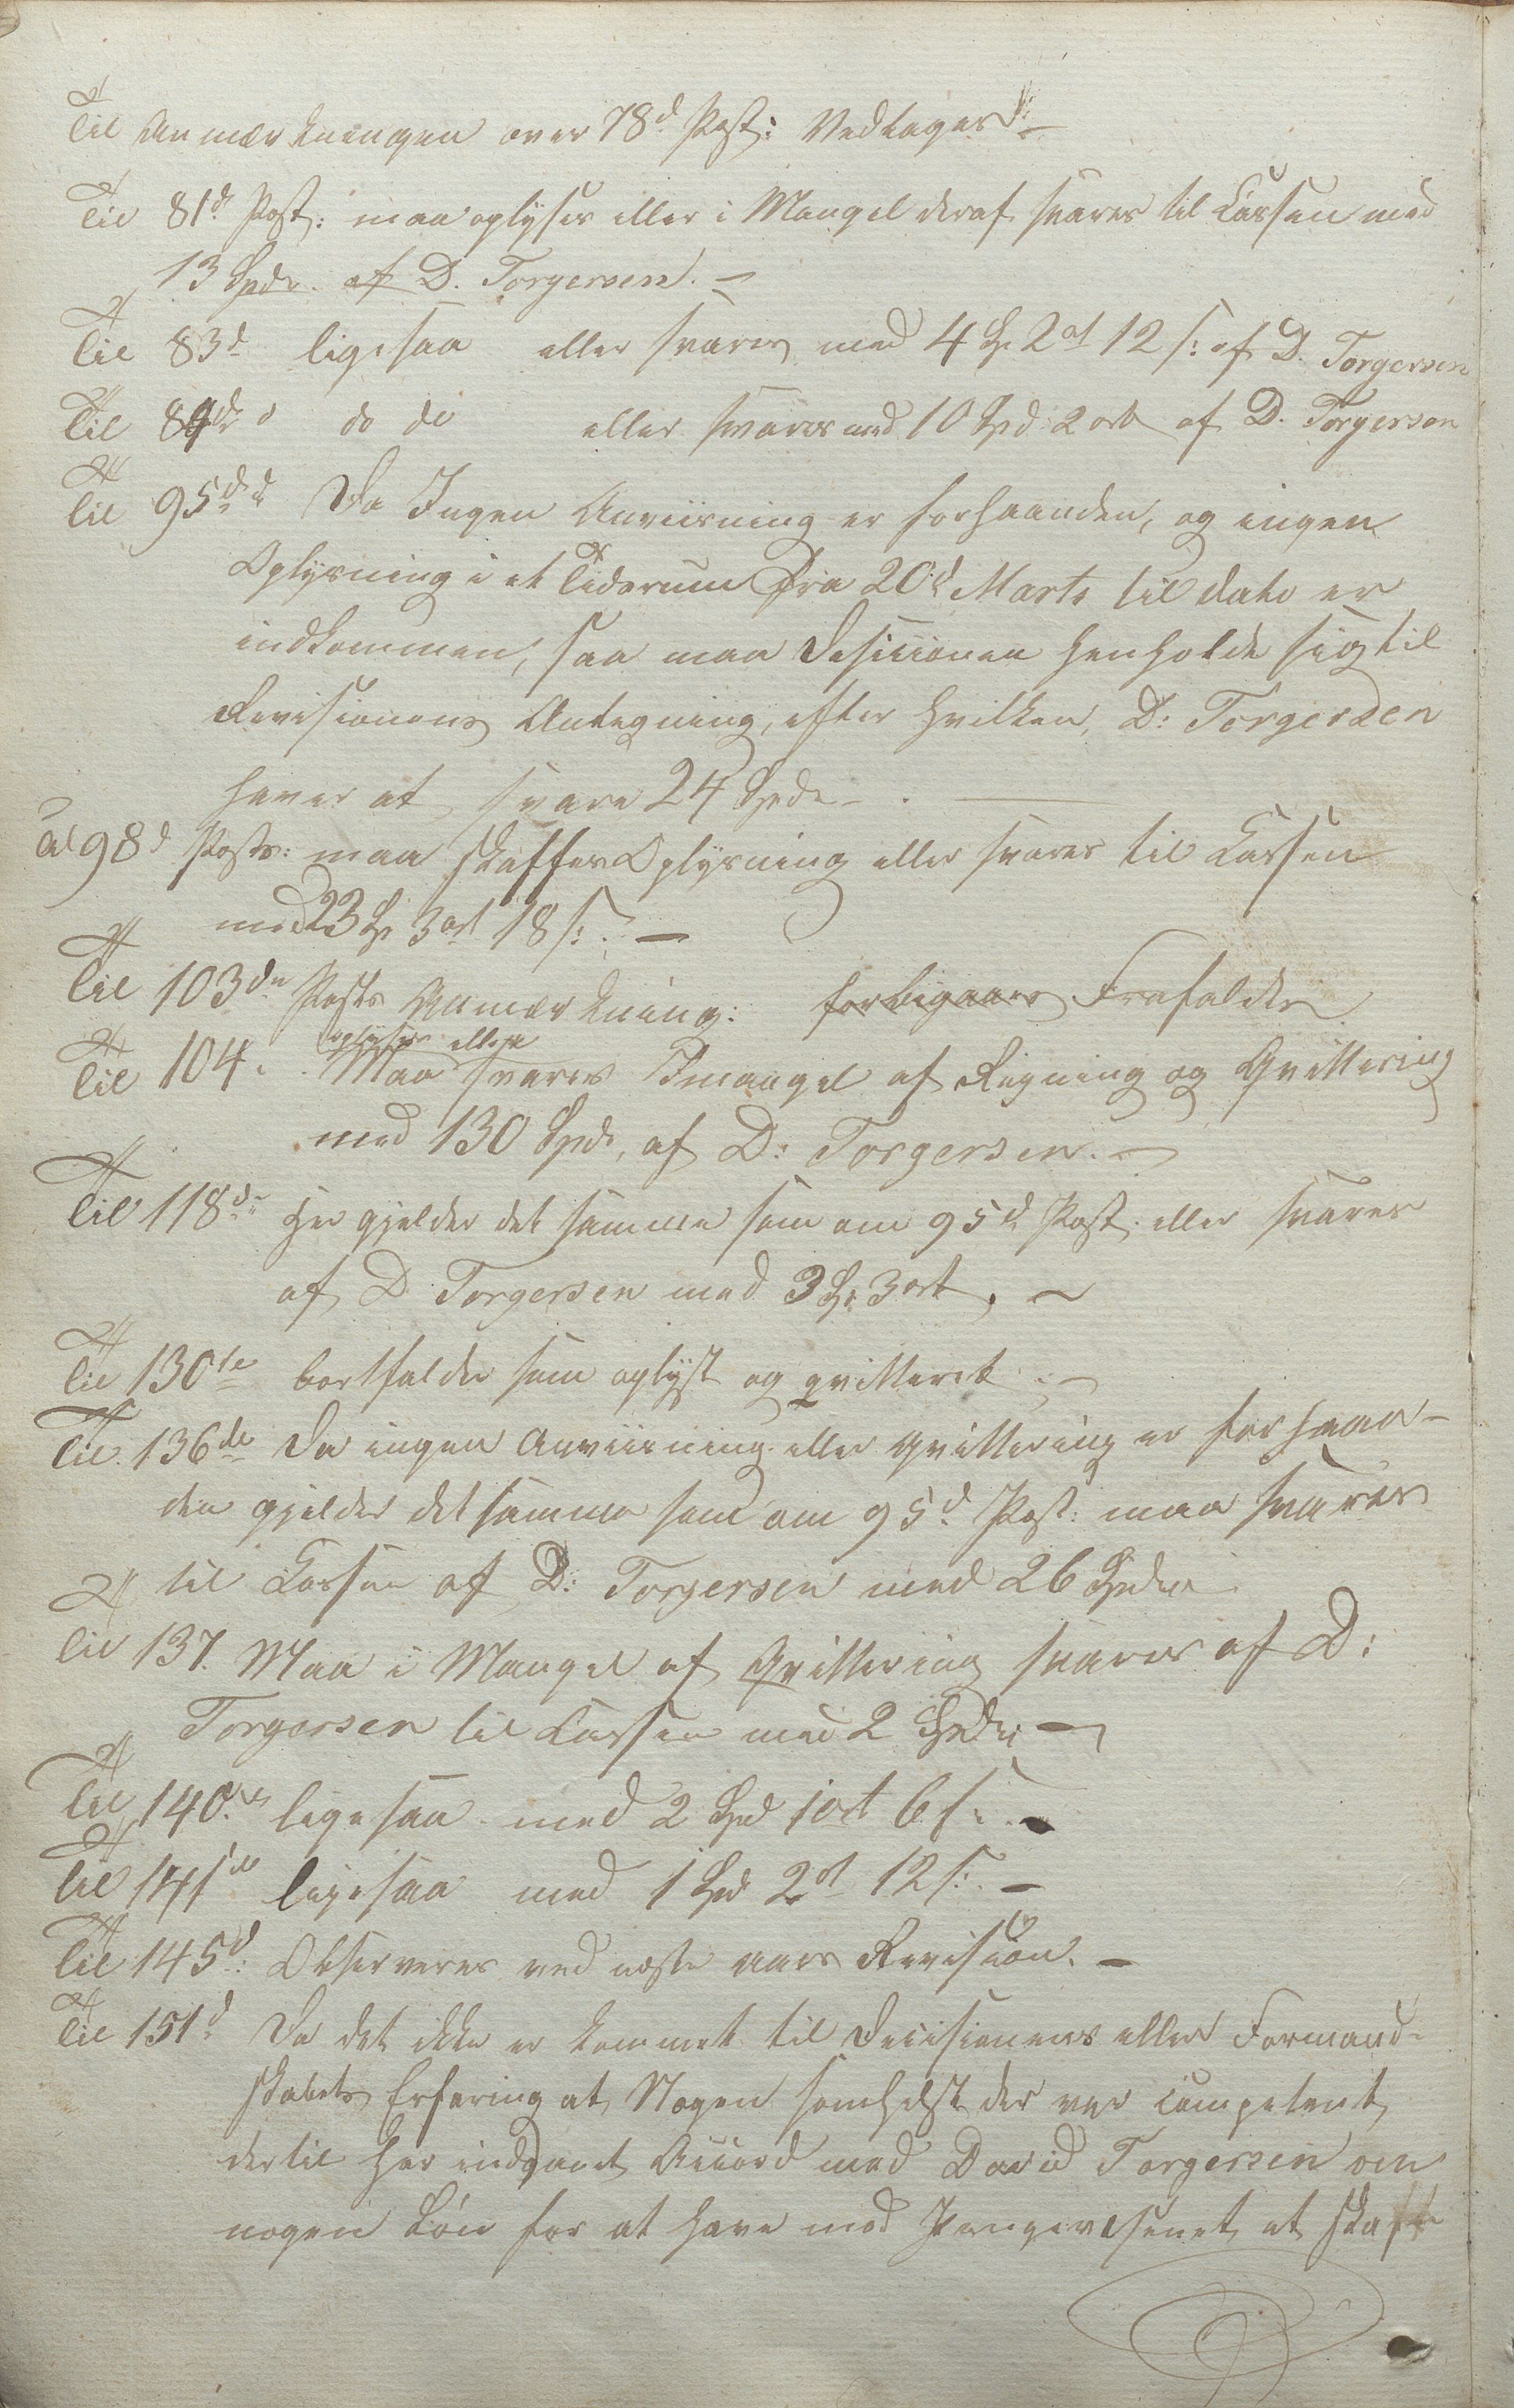 Til Anmærkningen over 78d Post: Vedtages
Til 81d Post: maa oplyses eller i Mangel deraf svares til Cassen med
13 Spd. af D. Torgersen. –
Til 83d ligesaa eller svares med 4 Sp 2 ort 12 s: af D. Torgersen
Til 89de do do eller svares med 10 Spd 2 ort af D. Torgersen
Til 95de Da Ingen Anviisning er forhaanden, og ingen
Oplysning i et Tidsrum fra 20d Marts til dato er
indkommen, saa maa Desicionen henholde sig til
Revisionens Antegning, efter hvilken, D: Torgersen
haver at svare 24 Spd –
Til 98d Post: maa skaffes Oplysning eller svares til Cassen
med 23 Sp 3 ort 18 s: –
Til 103de Posts Anmærkning: forbigaaes Frafalder
oplyses eller
Til 104. Maa svares Imangel af Regning og Qvittering
med 130 Spd, af D: Torgersen. –
Til 118de Her gjelder det samme som om 95d Post. eller svares
af D Torgersen med 3 Sp 3 ort. –
Til 130te bortfalder som oplyst og qvitteret. –
Til 136de Da ingen Anviisning eller Qvittering er forhaan-
den gjelder det samme som om 95d Post: maa svares
til Cassen af D: Torgersen med 26 Spd
Til 137. Maa i Mangel af Qvittering svares af D:
Torgersen til Cassen med 2 Spd –
Til 140. ligesaa med 2 Spd 1 ort 6 s. –
Til 141de ligesaa med 1 Spd 2 ort 12 s: –
Til 145d: Observeres ved neste aars Revision. –
Til 151d Da det ikke er kommet til Decisionens eller Formand-
skabets Erfaring at Nogen somhelst der var competent
dertil har indgaaet Accord med David Torgersen om
nogen Løn for at have med Pengevesenet at skaffe